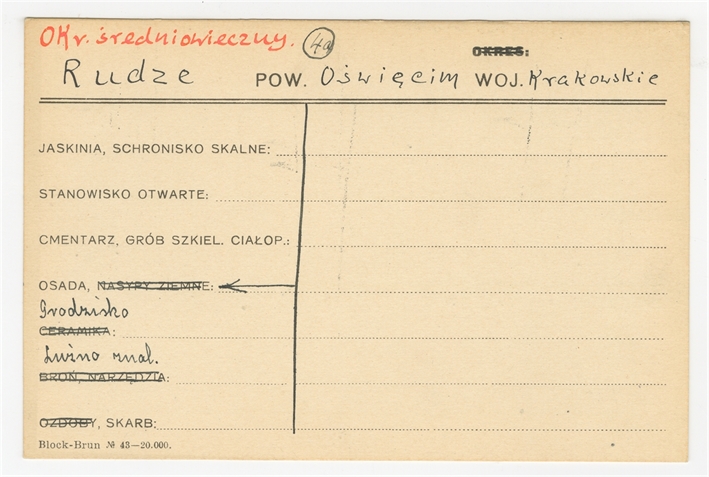 Okr. średniowieczny. 4a OKRES:
Rudze POW. Oświęcim WOJ. Krakowskie
JASKINIA, SCHRONISKO SKALNE:
STANOWISKO OTWARTE:
CMENTARZ, GRÓB SZKIEL. CIAŁOP.:
OSADA, NASYPY ZIEMNE:
Grodzisko
CERAMIKA:
Luźno znal.
BROŃ, NARZĘDZIA:
OZDOBY, SKARB:
Block-Brun № 43—20.000.